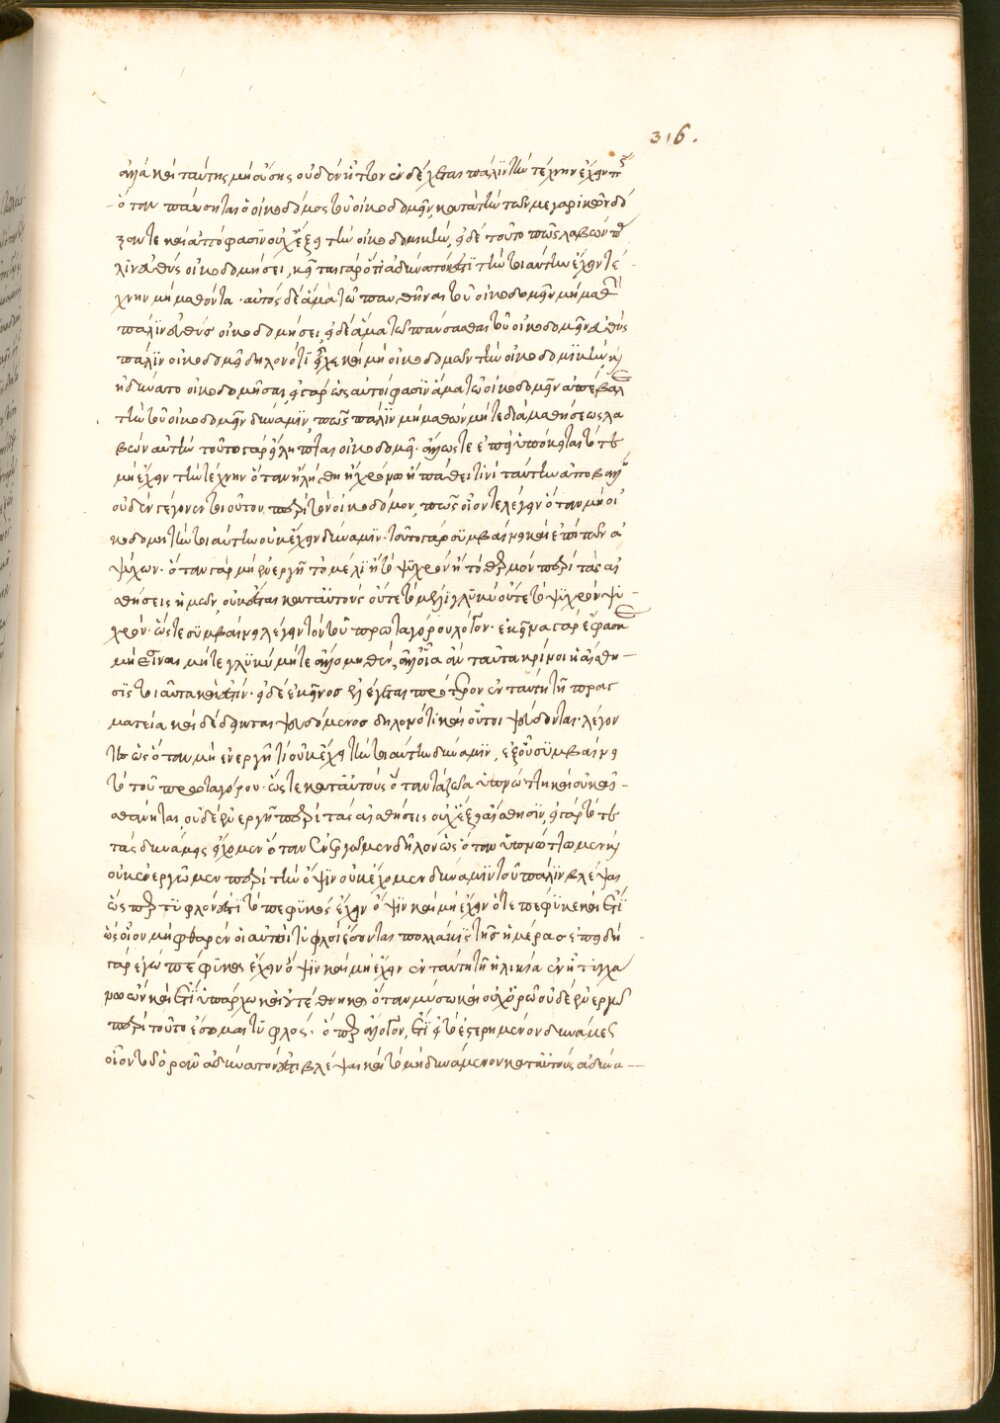 316.
ἀλλὰ καὶ ταύτης μὴ οὔσης οὐδὲν ἧττον ἐνδέχεται πάλιν τὴν τέχνην ἔχειν
ὅταν παύσηται ὁ οἰκοδόμος τοῦ οἰκοδομεῖν, κατὰ τὴν τῶν μεγαρικῶν δό
ξαν τε καὶ ἀπόφασιν οὐχ ἕξει τὴν οἰκοδομικήν, εἰ δὲ τοῦτο πῶς λαβὼν πά
λιν εὐθὺς οἰκοδομήσει, καὶ γὰρ ὅτι ἀδύνατόν ἐστι τὴν τοιαύτην ἔχειν τέ
χνην μὴ μαθόντα. αὐτὸς δὲ ἅμα τῷ παυθῆναι τοῦ οἰκοδομεῖν μὴ μαθὼν
πάλιν εὐθὺς οἰκοδομήσει, εἰ δὲ ἅμα τῷ παύσασθαι τοῦ οἰκοδομεῖν εὐθὺς
πάλιν οἰκοδομεῖ δηλονότι εἶχε καὶ μὴ οἰκοδομῶν τὴν οἰκοδομικὴν καὶ
ἠδύνατο οἰκοδομῆσαι, εἰ γὰρ ὡς αὐτοί φασιν ἅμα τῷ οἰκοδομεῖν ἀπέβαλε
τὴν τοῦ οἰκοδομεῖν δύναμιν, πῶς πάλιν μὴ μαθὼν μήτε διὰ μαθήσεως λα
βὼν αὐτὴν τοῦτο γὰρ εἴληπται οἰκοδομεῖ. ἄλλως τε ἐπεὶ ὑπόκειται τότε
μὴ ἔχειν τὴν τέχνην ὅταν ἢ λήθῃ ἢ χρόνῳ ἢ πάθει τινὶ ταύτην ἀποβάλῃ
οὐδὲν γέγονεν τοιοῦτον περὶ τὸν οἰκοδόμον, πῶς οἷόν τε λέγειν ὅταν μὴ οἰ
κοδομῇ τὴν τοιαύτην οὐκ ἔχειν δύναμιν. τοῦτο γὰρ συμβαίνει καὶ ἐπὶ τῶν ἀ
ψύχων. ὅταν γὰρ μὴ ἐνεργῇ τὸ μέλι ἢ τὸ ψυχρὸν ἢ τὸ θερμὸν περὶ τὰς αἰ
σθήσεις ἡμῶν, οὐκ ἔσται κατ' αὐτοὺς οὔτε τὸ μέλι γλυκὺ οὔτε τὸ ψυχρὸν ψυ
χρόν. ὥστε συμβαίνει λέγειν τὸν τοῦ πρωταγόρου λόγον. ἐκεῖνα γὰρ ἔφασκε
μὴ εἶναι μήτε γλυκὺ μήτε ἄλλο μηθέν, ἀλλ' οἷα ἂν ταῦτα κρίνοι ἡ αἴσθη
σις τοιαῦτα καί ἐστιν. εἰ δὲ ἐκεῖνος ἐλέγχεται πρότερον ἐν ταύτῃ τῇ πραγ
ματείᾳ καὶ δέδεικται ψευδόμενος δηλονότι καὶ οὗτοι ψεύδονται. λέγον
τες ὡς ὅταν μὴ ἐνεργῇ τι οὐκ ἔχει τὴν τοιαύτην δύναμιν, ἐξ οὗ συμβαίνει
τὸ τοῦ πρωταγόρου. ὥστε κατ' αὐτοὺς ὅταν τὰ ζῷα ὑπνώττῃ καὶ οὐκ αἰ
σθάνηται, οὐδὲ ἐνεργῇ περὶ τὰς αἰσθήσεις οὐχ ἕξει αἴσθησιν, εἰ γὰρ τότε
τὰς δυνάμεις ἔχομεν ὅταν ἐνεργῶμεν δῆλον ὡς ὅταν ὑπνώττωμεν καὶ
οὐκ ἐνεργῶμεν περὶ τὴν ὄψιν οὐκ ἔχομεν δύναμιν τοῦ πάλιν βλέψαι
ὥσπερ τυφλόν ἐστι τὸ πεφυκὸς ἔχειν ὄψιν καὶ μὴ ἔχειν ὅτε πέφυκε καὶ ἔτι
ὡς οἷον μὴ φθαρὲν οἱ αὐτοὶ τυφλοὶ ἔσονται πολλάκις τῆς ἡμέρας ἐπειδὴ
γὰρ ἐγὼ πέφυκα ἔχειν ὄψιν καὶ μὴ ἔχειν ἐν ταύτῃ τῇ ἡλικίᾳ ἐν ᾗ τυγχά
νω ὢν καὶ ἔτι ὑπάρχω καὶ οὐ τέθνηκα ὅταν μύσω καὶ οὐχ ὁρῶ οὐδὲ ἐνεργῶ
περὶ τοῦτο ἔσομαι τυφλός. ὅπερ ἄλογον, ἔτι εἰ τὸ ἐστερημένον δυνάμεως
οἷον τοῦ ὁρᾶν ἀδύνατόν ἐστι βλέψαι καὶ τὸ μὴ δυνάμενον κατ' αὐτοὺς ἀδύνα